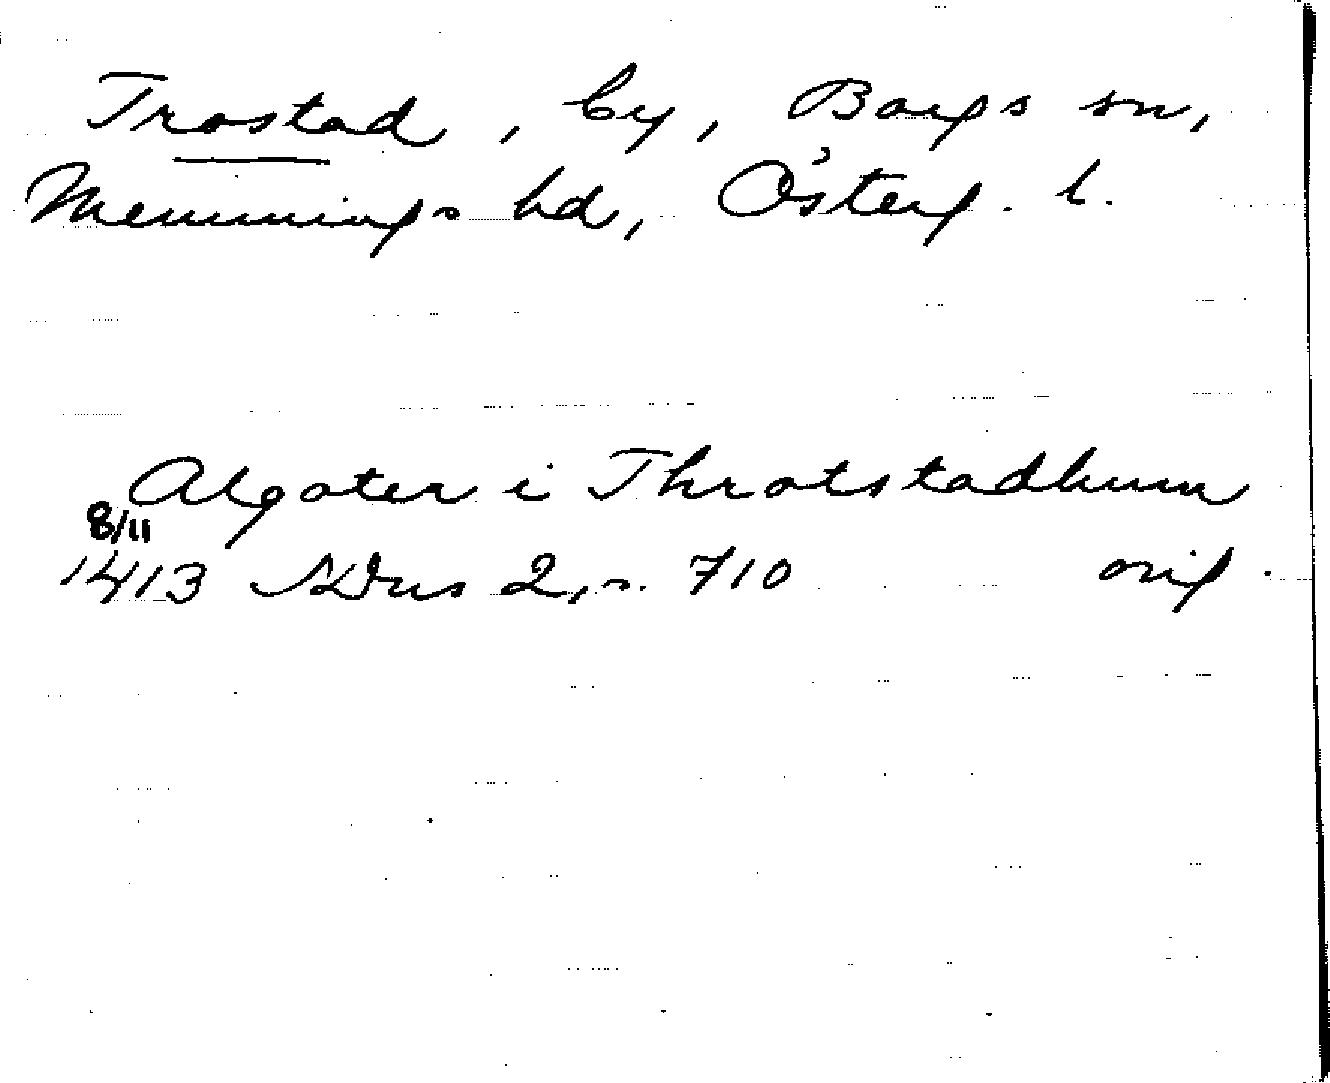 Trostad, by, Borgs sn,
Memmings hd, Österg. l.
Algoter i Throtstadhum
8/11
1413 SDns 2, s. 710 orig.